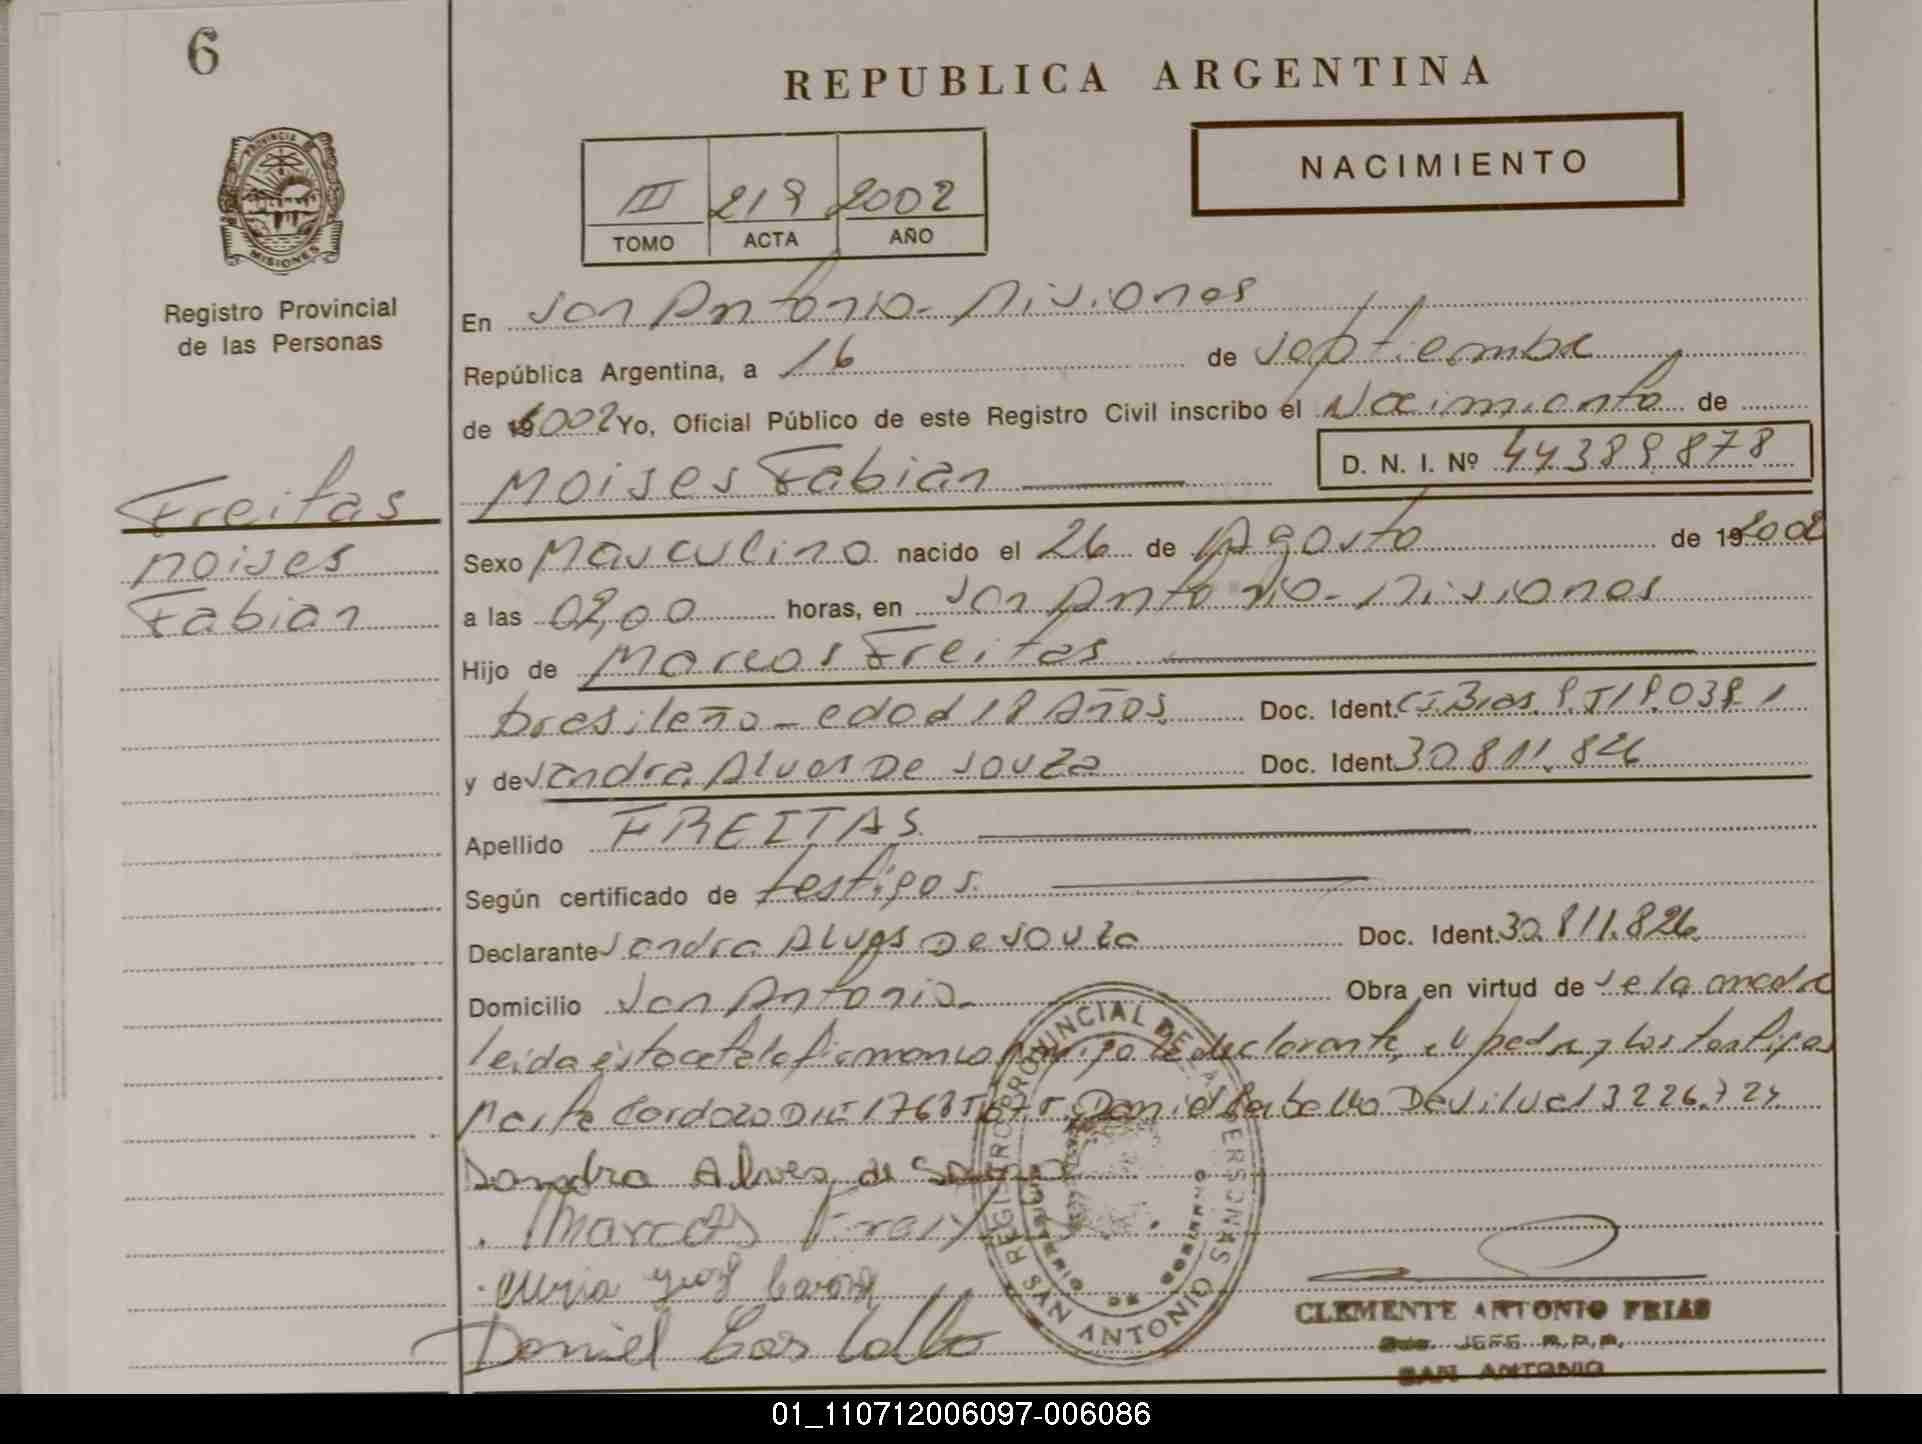 6
REPUBLICA ARGENTINA
NACIMIENTO
III 219 2002
TOMO ACTA AÑO
PROVINCIA DE MISIONES
Registro Provincial
de las Personas
En San Antonio - Misiones
República Argentina, a 16 de septiembre
de 2002 Yo, Oficial Público de este Registro Civil inscribo el Nacimiento de
Moises Fabian D. N. I. Nº 44.389.878
Freitas
Moises
Fabian
Sexo Masculino nacido el 26 de Agosto de 192002
a las 02,00 horas, en San Antonio - Misiones
Hijo de Marcos Freitas
brasileño - edad 18 Años Doc. Ident.
y de Sandra Alves De Souza Doc. Ident. 30.811.826
Apellido FREITAS
Según certificado de testigos
Declarante Sandra Alves De Souza Doc. Ident. 30.811.826
Domicilio San Antonio - Obra en virtud de ser la madre
leida este acta la firman conmigo la declarante, el padre y los testigos
Daniel 13226.724
Sandra Alves de Souza
Marcos
Daniel
REGISTRO PROVINCIAL DE LAS PERSONAS
SAN ANTONIO
CLEMENTE ANTONIO FRIAS
JEFE R.P.P.
SAN ANTONIO
01_110712006097-006086